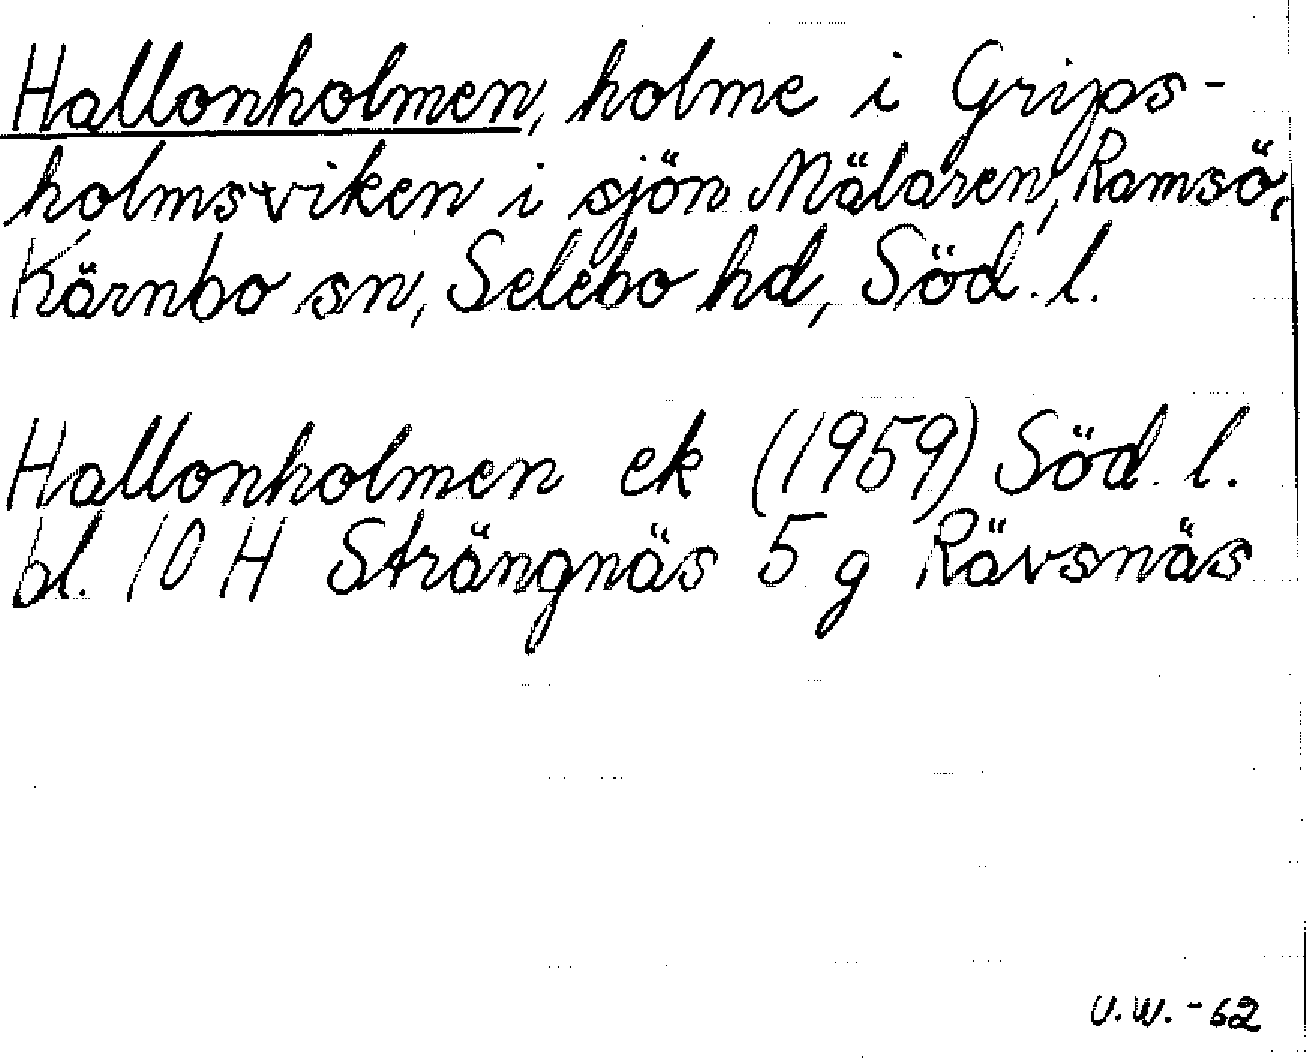 Hallonholmen, holme i Grips-
holmsviken i sjön Mälaren, Ramsö,
Kärnbo sn, Selebo hd, Söd. l.
Hallonholmen ek (1959) Söd. l.
bl. 10 H Strängnäs 5 g Rävsnäs
U.W. - 62